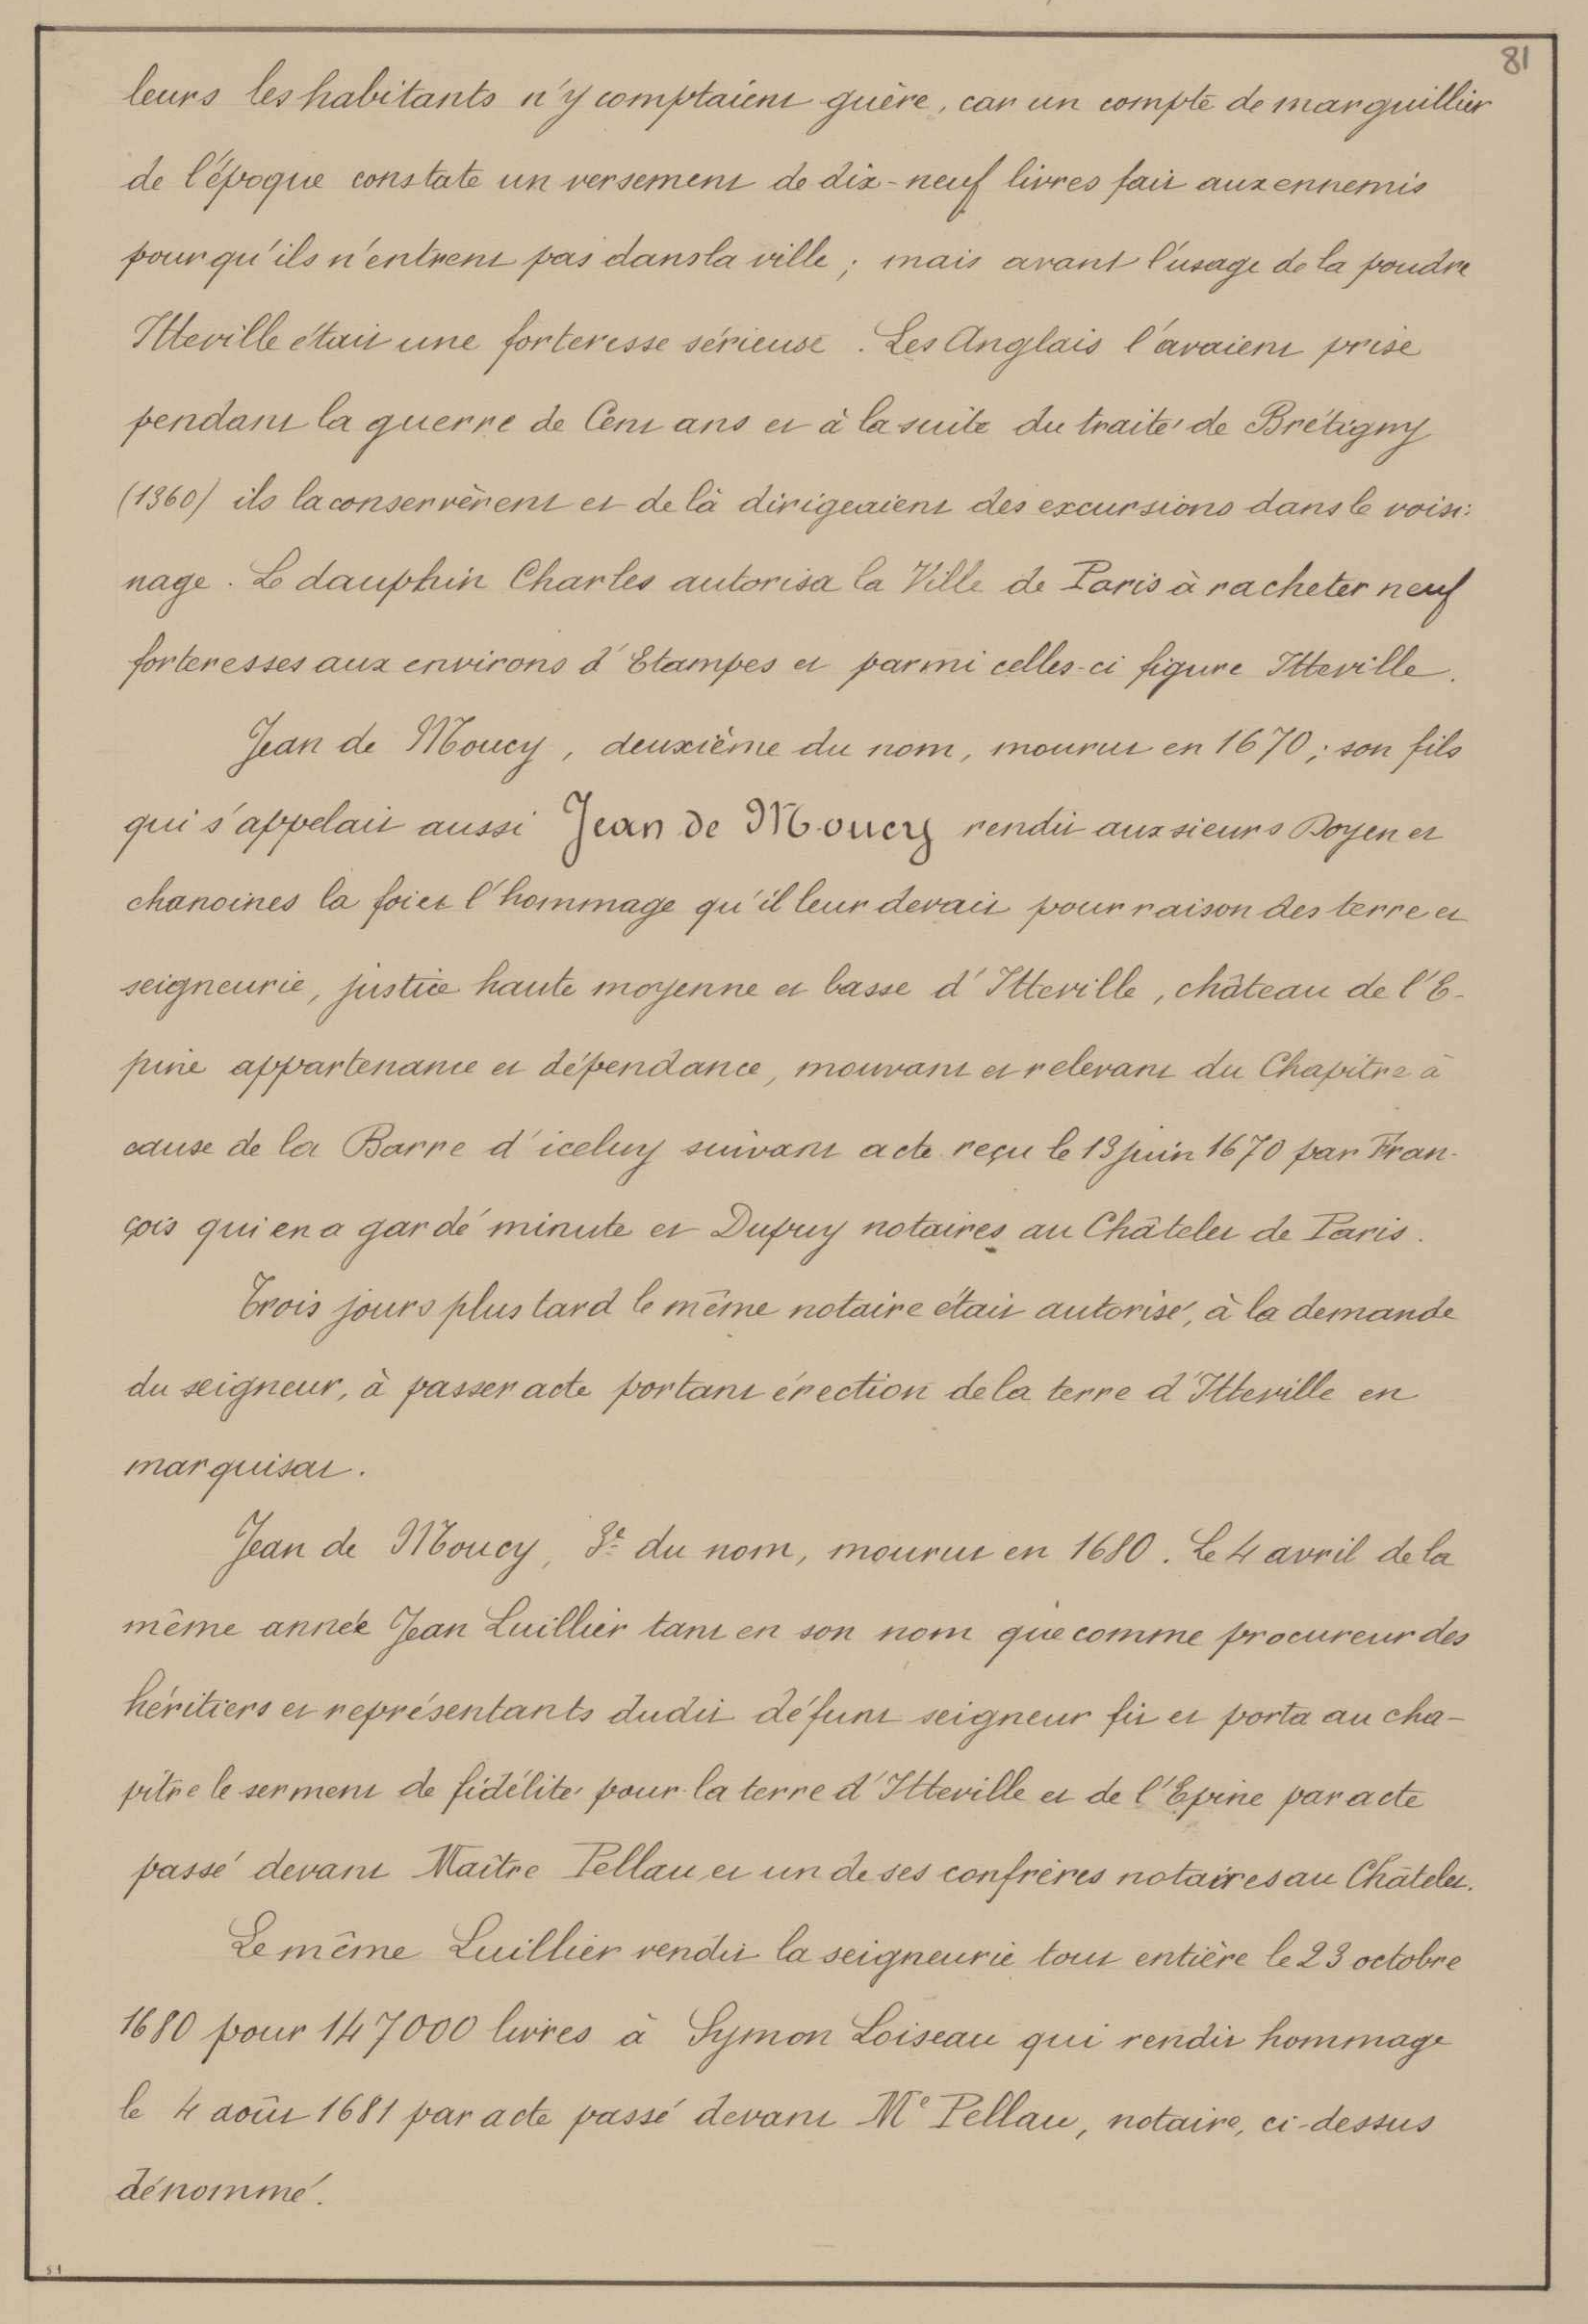 81
leurs les habitants n'y comptaient guère, car un compte de marguillier
de l'époque constate un versement de dix-neuf livres fait aux ennemis
pour qu'ils n'entrent pas dans la ville ; mais avant l'usage de la poudre
Itteville était une forteresse sérieuse. Les Anglais l'avaient prise
pendant la guerre de Cent ans et à la suite du traité de Brétigny
(1360) ils la conservèrent et de là dirigeaient des excursions dans le voisi:
nage. Le dauphin Charles autorisa la Ville de Paris à racheter neuf
forteresses aux environs d'Etampes et parmi celles-ci figure Itteville.
Jean de Moucy, deuxième du nom, mourut en 1670 ; son fils
qui s'appelait aussi Jean de Moucy rendit aux sieurs Doyen et
chanoines la foi et l'hommage qu'il leur devait pour raison des terre et
seigneurie, justice haute moyenne et basse d'Itteville, château de l'E-
pine appartenance et dépendance, mouvant et relevant du Chapitre à
cause de la Barre d'iceluy suivant acte reçu le 13 juin 1670 par Fran-
çois qui en a gardé minute et Dupuy notaires au Châtelet de Paris.
Trois jours plus tard le même notaire était autorisé, à la demande
du seigneur, à passer acte portant érection de la terre d'Itteville en
marquisat.
Jean de Moucy, 3e du nom, mourut en 1680. Le 4 avril de la
même année Jean Luillier tant en son nom que comme procureur des
héritiers et représentants dudit défunt seigneur fit et porta au cha-
pitre le serment de fidélité pour la terre d'Itteville et de l'Epine par acte
passé devant Maître Pellau et un de ses confrères notaires au Châtelet.
Le même Luillier vendit la seigneurie tout entière le 23 octobre
1680 pour 147000 livres à Symon Loiseau qui rendit hommage
le 4 août 1681 par acte passé devant Me Pellau, notaire, ci-dessus
dénommé.
81